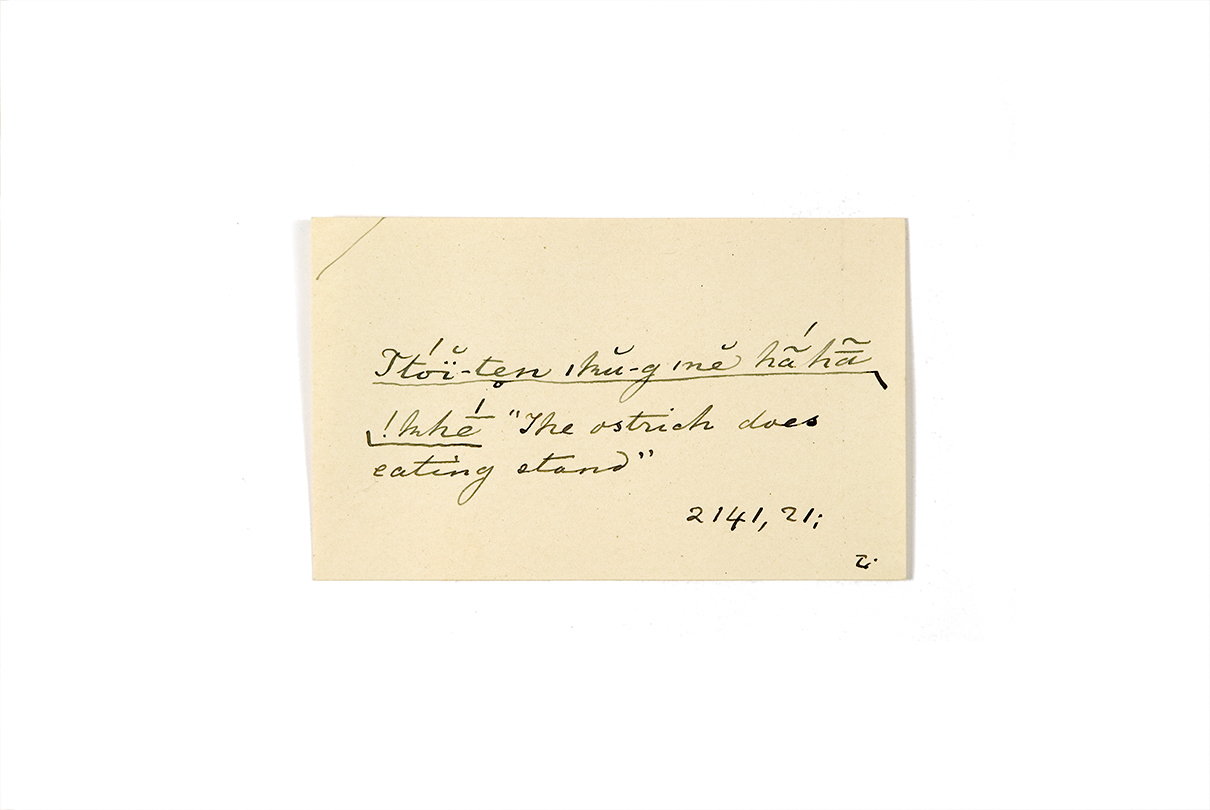 Ttóï̆-ten ıkŭ-g ınĕ hã́hã̄
!khé̄ "The ostrich does
eating stand"
2141, 21;